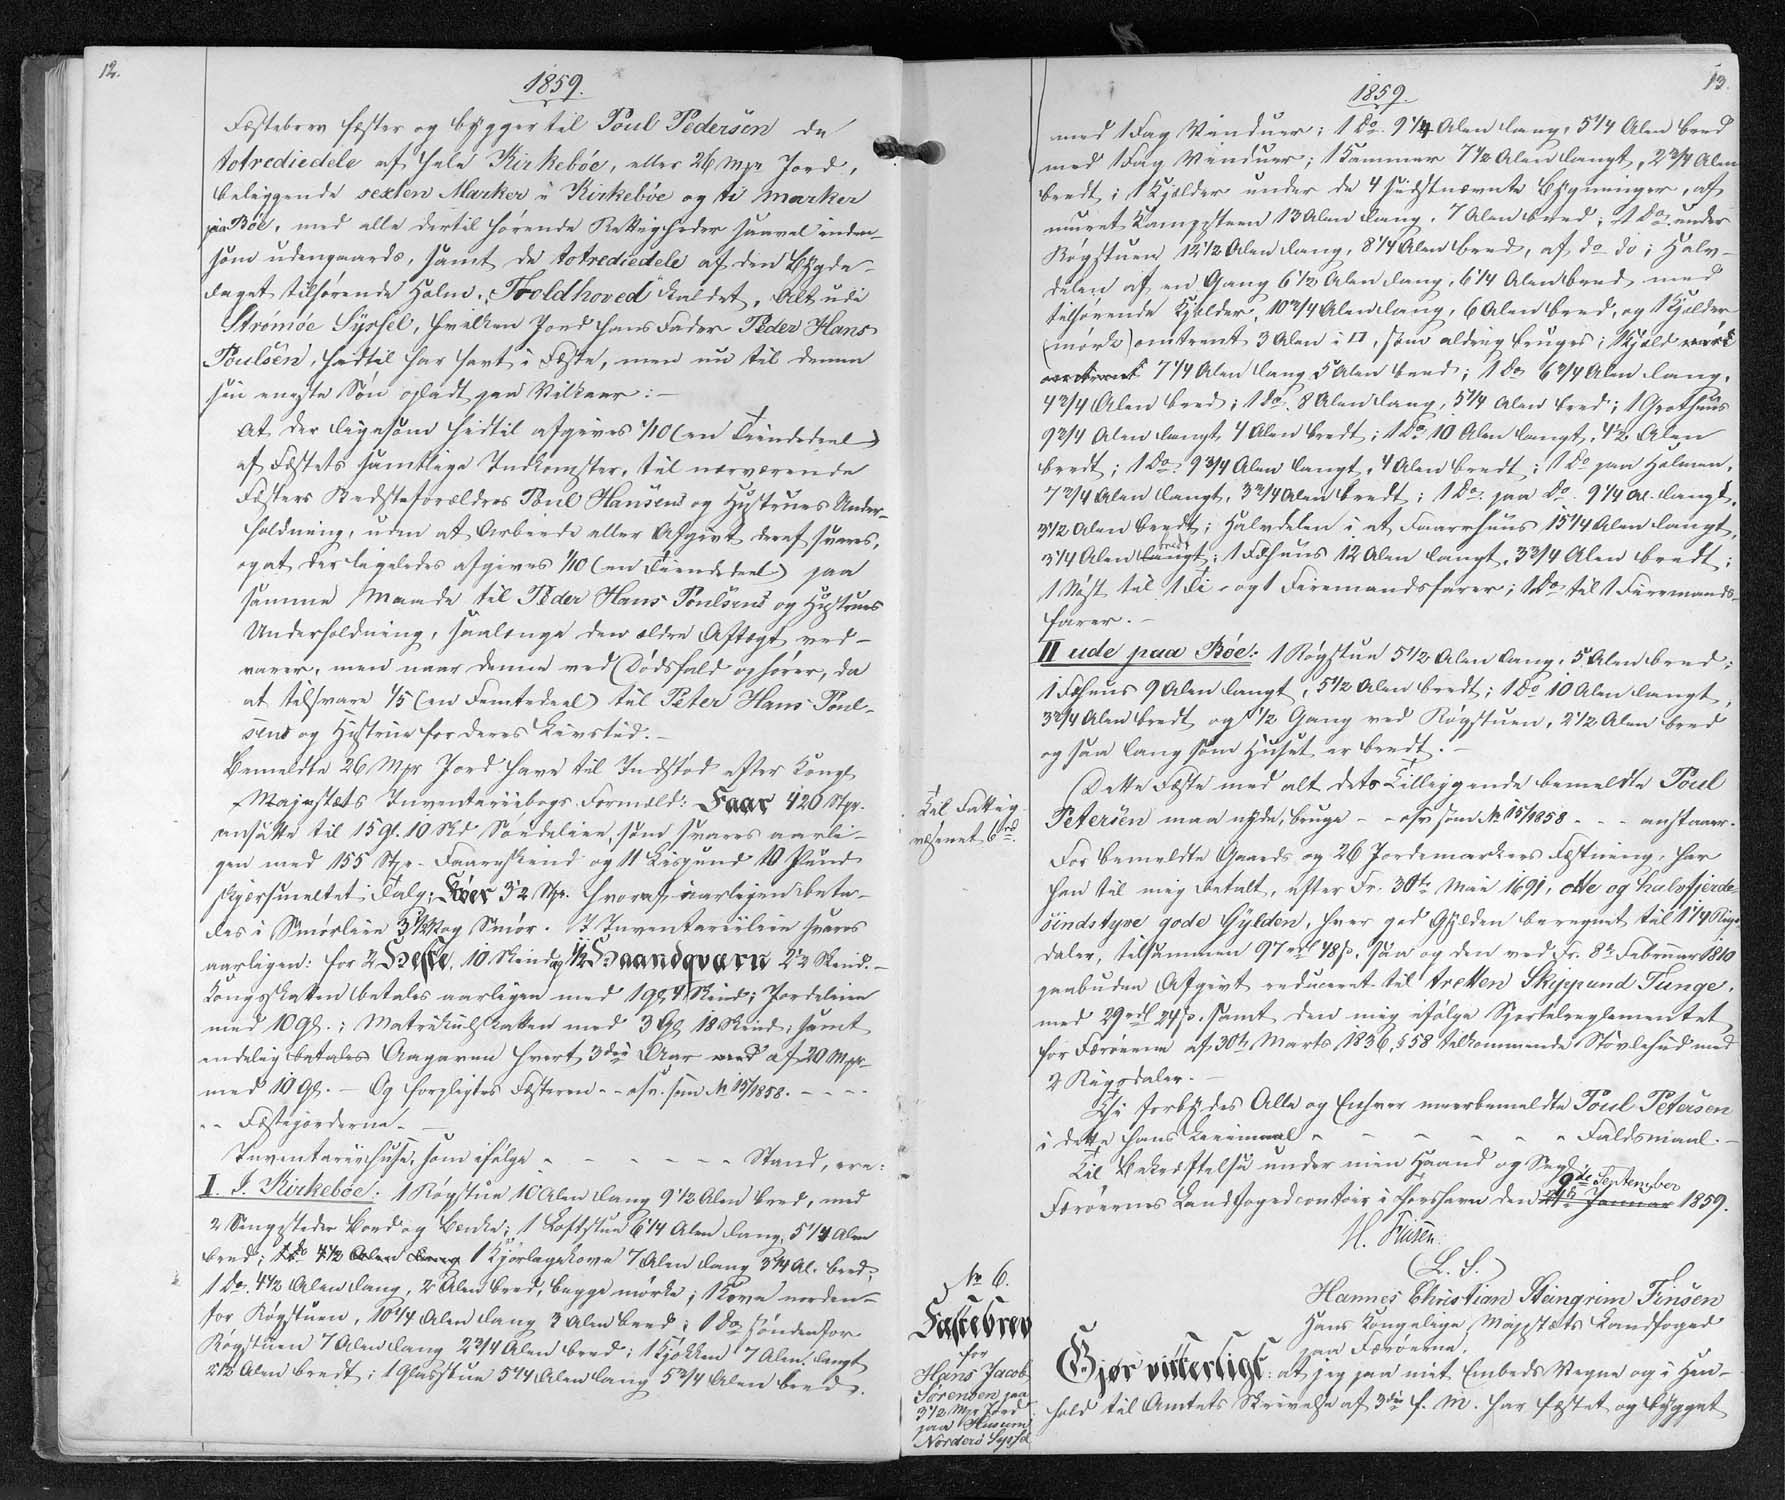 12.
1859.
Fæstebrev fæster og bygger til Poul Pedersen de
totrediedele af hele Kirkebøe, eller 26 Mgr Jord,
beliggende sexten Marker i Kirkebøe og ti Marker
paa Bøe, med alle dertil hørende Rettigheder saavel inden-
som udengaards, samt de totrediedele af den Bygde-
laget tilhørende Holm, Troldhoved kaldet, Alt udi
Strømøe Syssel, hvilken Jord hans Fader Peder Hans
Poulsen, hidtil har havt i Fæste, men nu til denne
sin eneste Søn opladt paa Vilkaar:-
At der ligesom hidtil afgives 1/10 (en Tiendedeel)
af Fæstets samtlige Indkomster, til nærværende
Fæsters Bedsteforældres Poul Hansens og Hustrues Under-
holdning, uden at Arbeide eller Afgivt deraf svares,
og at der ligeledes afgives 1/10 (en Tiendedeel) paa
samme Maade til Peder Hans Poulsens og Hustrues
Underholdning, saalænge den ældre Aftægt ved-
varer, men naar denne ved Dødsfald ophører, da
at tilsvare 1/5 (en Femtedeel) til Peter Hans Poul-
sens og Hustrue for deres Livstid.-
Bemeldte 26 Mgr Jord have til Indstød efter Kongl
Majestæts Inventariibogs Formeld: Faar 420 Stpr.
ansatte til 15 gl. 10 Skd Søedeleie, som svares aarli-
gen med 155 Stpr. Faareskind og 11 Lispund 10 Pund
skjærsmeltet Talg; Køer 32 Stpr. hvoraf aarligen beta-
les i Smørleie 3 1/2 Vog Smør. I Inventariileie svares
aarligen: for 2 Heste, 10 Skind og 1/2 Haandqværn 2 1/2 Skind.-
Kongsskatten betales aarligen med 19 gl. 4 Skind; Jordeleien
med 10 Gl.; Matrikulskatten med 3 Gl 18 Skind; samt
endelig betales Aagaven hvert 3die Aar med af 20 Mgr
med 10 Gl. - Og forpligtes Fæsteren - - osv. som No 15/1858. - - - -
- - Fæstejorderne.-
Inventariihuse, som ifølge - - - - - - Stand, ere:
I. I. Kirkebøe: 1 Røgstue 10 Alen lang 9 1/2 Alen bred, med
2 Sengesteder Bord og Bænke; 1 Loftstue 6 1/4 Alen lang, 5 1/4 Alen
bred; 1 do 4 1/2 Alen lang 1 Kjørlagskove 7 Alen lang 3 1/4 Al. bred;
1 do. 4 1/2 Alen lang, 2 Alen bred, begge mørke; 1 Kove norden-
for Røgstuen, 10 1/4 Alen lang 3 Alen bred; 1 do søndenfor
Røgstuen 7 Alen lang 2 3/4 Alen bred; 1 Kjøkken 7 Alen langt
2 1/2 Alen bredt; 1 Glasstue 5 1/4 Alen lang 5 3/4 Alen bred,
13.
1859.
med 1 Fag Vinduer; 1 do. 9 1/4 Alen lang, 5 1/4 Alen bred
med 1 Fag Vinduer; 1 Kammer 7 1/2 Alen langt, 2 3/4 Alen
bredt; 1 Kjælder under de 4 sidstnævnte Bygninger, af
muret Kampesteen 13 Alen lang, 7 Alen bred; 1 do under
Røgstuen 12 1/2 Alen lang, 8 1/4 Alen bred, af do do; Halv-
delen af en Gang 6 1/2 Alen lang, 6 1/4 Alen bred med
tilhørende Kjælder, 10 3/4 Alen lang, 6 Alen bred, og 1 Kjælder
(mørk) omtrent 3 Alen i □, som aldrig bruges; 1 Hjeld mørk
omtrent 7 1/4 Alen lang 5 Alen bred; 1 do 6 3/4 Alen lang,
4 3/4 Alen bred; 1 do. 8 Alen lang, 5 1/4 Alen bred; 1 Grothuus
9 3/4 Alen langt 4 Alen bredt; 1 do 10 Alen langt, 4 1/2 Alen
bredt; 1 do 9 3/4 Alen langt, 4 Alen bredt; 1 do paa Holmen,
7 3/4 Alen langt, 3 3/4 Alen bredt; 1 do: paa do. 9 1/4 Al. langt,
3 1/2 Alen bredt; Halvdelen i et Faarehuus 15 1/4 Alen langt,
3 1/4 Alen langt bredt; 1 Fæhuus 12 Alen langt, 3 3/4 Alen bredt;
1 Nøst til 1 Ti- og 1 Firemandsfarer; 1 do til 1 Firemands-
farer.-
II ude paa Bøe: 1 Røgstue 5 1/2 Alen lang, 5 Alen bred;
1 Fæhuus 9 Alen langt, 5 1/2 Alen bredt; 1 do 10 Alen langt,
3 3/4 Alen bredt og 1/2 Gang ved Røgstuen, 2 1/2 Alen bred
og saa lang som Huset er bredt.-
Dette Fæste med alt dets Tilliggende bemeldte Poul
Petersen maa nyde, bruge - - osv. som No 15/1858 - - - anstaaer.
For bemeldte Gaards og 26 Jordemarkers Fæstning, har
han til mig betalt, efter Fr. 30te Mai 1691, otte og halvfjerde-
sindstyve gode Gylden, hver god Gylden beregnet til 1 1/4 Rigs-
daler, tilsammen 97 rdl 48 s., saa og den ved Fr. 8de Februar 1810
paabudne Afgivt reduceret til tretten Skippund Tunge,
med 29 rdl 24 s. samt den mig ifølge Sportelreglementet
for Færøerne af 30te Marts 1836, §58 tilkommende Støvlehud med
2 Rigsdaler.-
Thi forbydes Alle og Enhver meerbemeldte Poul Petersen
i dette hans Leiemaal - - - - - - Faldsmaal.-
Til Bekræftelse under min Haand og Segl
Færøernes Landfogedcontoir i Thorshavn den 24de Januar 9de September 1859.
H. Finsen.
(L. S.)
Til Fattig-
væsenet 6 rd.
No 6.
Fæstebrev
for
Hans Jacob
Sørensen paa
3 1/2 Mgr Jord
paa Husum
Norderø Syssel
Hannes Christian Steingrim Finsen
Hans Kongelige Majestæts Landfoged
paa Færøerne,
Gjør vitterligt: at jeg paa mit Embeds Vegne og i Hen-
hold til Amtets Skrivelse af 3die f. M. har fæstet og bygget